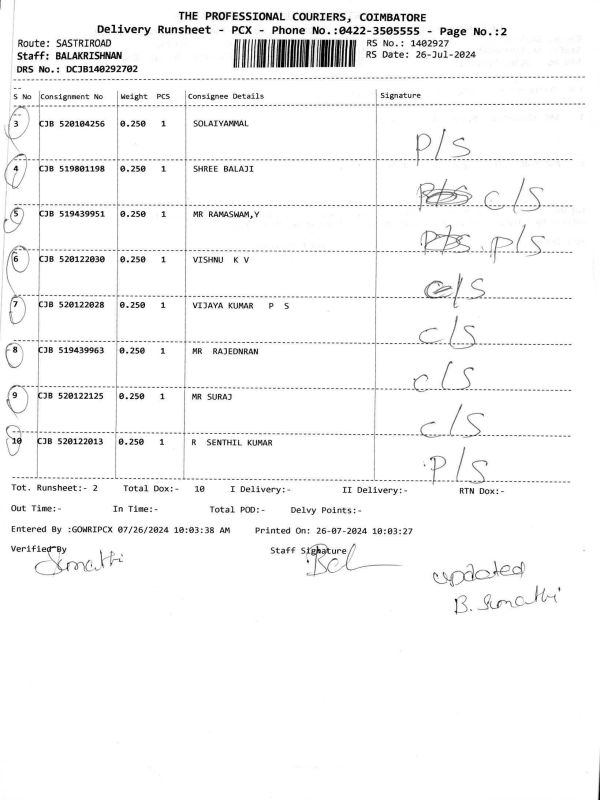 THE PROFESSIONAL COURIERS, COIMBATORE
Delivery Runsheet - PCX - Phone No.:0422-3505555 - Page No.:2
Route: SASTRIROAD RS No.: 1402927
Staff: BALAKRISHNAN RS Date: 26-Jul-2024
DRS No.: DCJB140292702
S No Consignment No Weight PCS Consignee Details Signature
3 CJB 520104256 0.250 1 SOLAIYAMMAL P/S
4 CJB 519801198 0.250 1 SHREE BALAJI C/S
5 CJB 519439951 0.250 1 MR RAMASWAM,Y P/S
6 CJB 520122030 0.250 1 VISHNU K V C/S
7 CJB 520122028 0.250 1 VIJAYA KUMAR P S C/S
8 CJB 519439963 0.250 1 MR RAJEDNRAN C/S
9 CJB 520122125 0.250 1 MR SURAJ C/S
10 CJB 520122013 0.250 1 R SENTHIL KUMAR P/S
Tot. Runsheet:- 2 Total Dox:- 10 I Delivery:- II Delivery:- RTN Dox:-
Out Time:- In Time:- Total POD:- Delvy Points:-
Entered By :GOWRIPCX 07/26/2024 10:03:38 AM Printed On: 26-07-2024 10:03:27
Verified By Staff Signature
Sumathi
updated
B. Sumathi